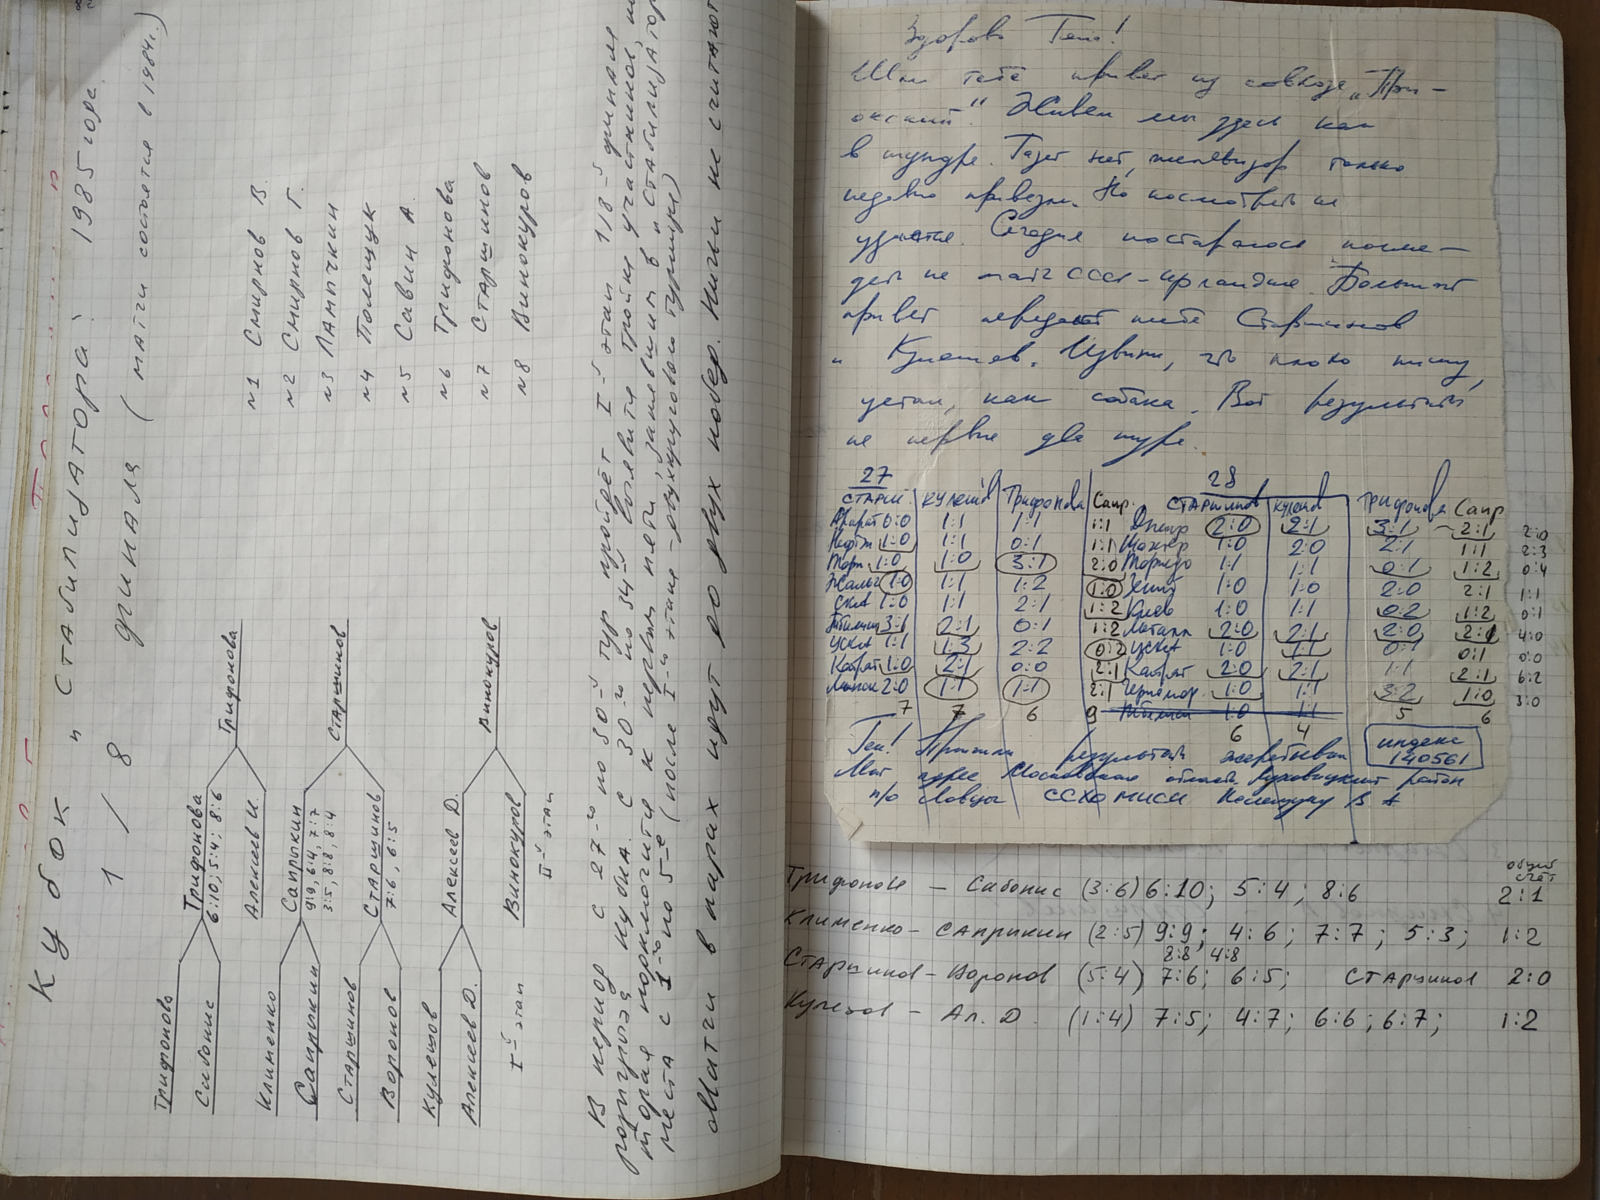 Кубок "Стабилизатора" 1985 года.
1/8 финала (матчи состоятся в 1984г.)
№1 Смирнов В.
№2 Смирнов Г.
№3 Лампчкин
№4 Полещук
№5 Савин А.
№6 Трифонова
№7 Старшинов
№8 Винокуров
Трифонова
Сабонис
Клименко
Сапрыкин
Старшинов
Воронов
Кулешов
Алексеев Д.
I-й этап
Трифонова
6:10; 5:4; 8:6
Алексеев И.
Сапрыкин
9:9, 6:4, 7:7
3:5, 8:8, 8:4
Старшинов
7:6, 6:5
Алексеев Д.
Винокуров
II-й этап
Трифонова
Старшинов
Винокуров
В период с 27-го по 30-й тур пройдёт I-й этап 1/8 финала
розыгрыша кубка. С 30-го по 34-й выявите тройку участников,
которая подключится к первым пяти, занявшим в "Стабилизатор
места с 1-го по 5-е (после I-го этапа - двухкругового турнира)
Матчи в парах идут до двух побед. Ничьи не считают
Здорово Гена!
Шлю тебе привет из совхоза "При-
окский". Живем мы здесь как
в тундре. Газет нет, телевизор только
недавно привезли. Но посмотреть не
удается. Сегодня постараюсь погля-
деть на матч СССР - Ирландия. Большой
привет передают тебе Старшинов
и Кулешов. Извини, что плохо пишу,
устал, как собака. Вот результаты
на первые два тура.
27 28
Старш Кулешов Трифонова Сапр. Старшинов Кулешов Трифонова Сапр
Арарат 0:0 1:1 1:1 1:1 Днепр 2:0 2:1 3:1 2:1 2:0
Нефтч 1:0 1:1 0:1 1:1 Шахтер 1:0 2:0 2:1 1:1 2:3
Торп. 1:0 1:0 3:1 2:0 Торпедо 1:1 1:1 0:1 1:2 0:4
Жальг 1:0 1:1 1:2 1:0 Зенит 1:0 1:0 2:0 2:1 1:1
СКА 1:0 1:1 2:1 1:2 Киев 1:0 1:1 0:2 1:2 0:1
Тбилиси 3:1 2:1 0:1 1:2 Металл 2:0 2:1 2:0 2:1 4:0
ЦСКА 1:1 1:3 2:2 0:2 ЦСКА 1:0 1:1 0:1 0:1 0:0
Кайрат 1:0 2:1 0:0 2:1 Кайрат 2:0 2:1 1:1 2:1 6:2
2:0 1:1 1:1 2:1 Черномор 1:0 1:1 3:2 1:0 3:0
7 7 6 9 1:0 1:1 5 6
6 4
Ген! Пришли результаты жеребьевки
индекс
140561
Мой адрес Московская область, Луховицкий район
п/о Ловцы ССХО МИСИ Полещуку В А
общий
счёт
Трифонова - Сабонис (3:6) 6:10; 5:4; 8:6 2:1
Клименко - Сапрыкин (2:5) 9:9; 4:6; 7:7; 5:3; 1:2
8:8 4:8
Старшинов - Воронов (5:4) 7:6; 6:5; Старшинов 2:0
Кулешов - Ал. Д. (1:4) 7:5; 4:7; 6:6; 6:7; 1:2